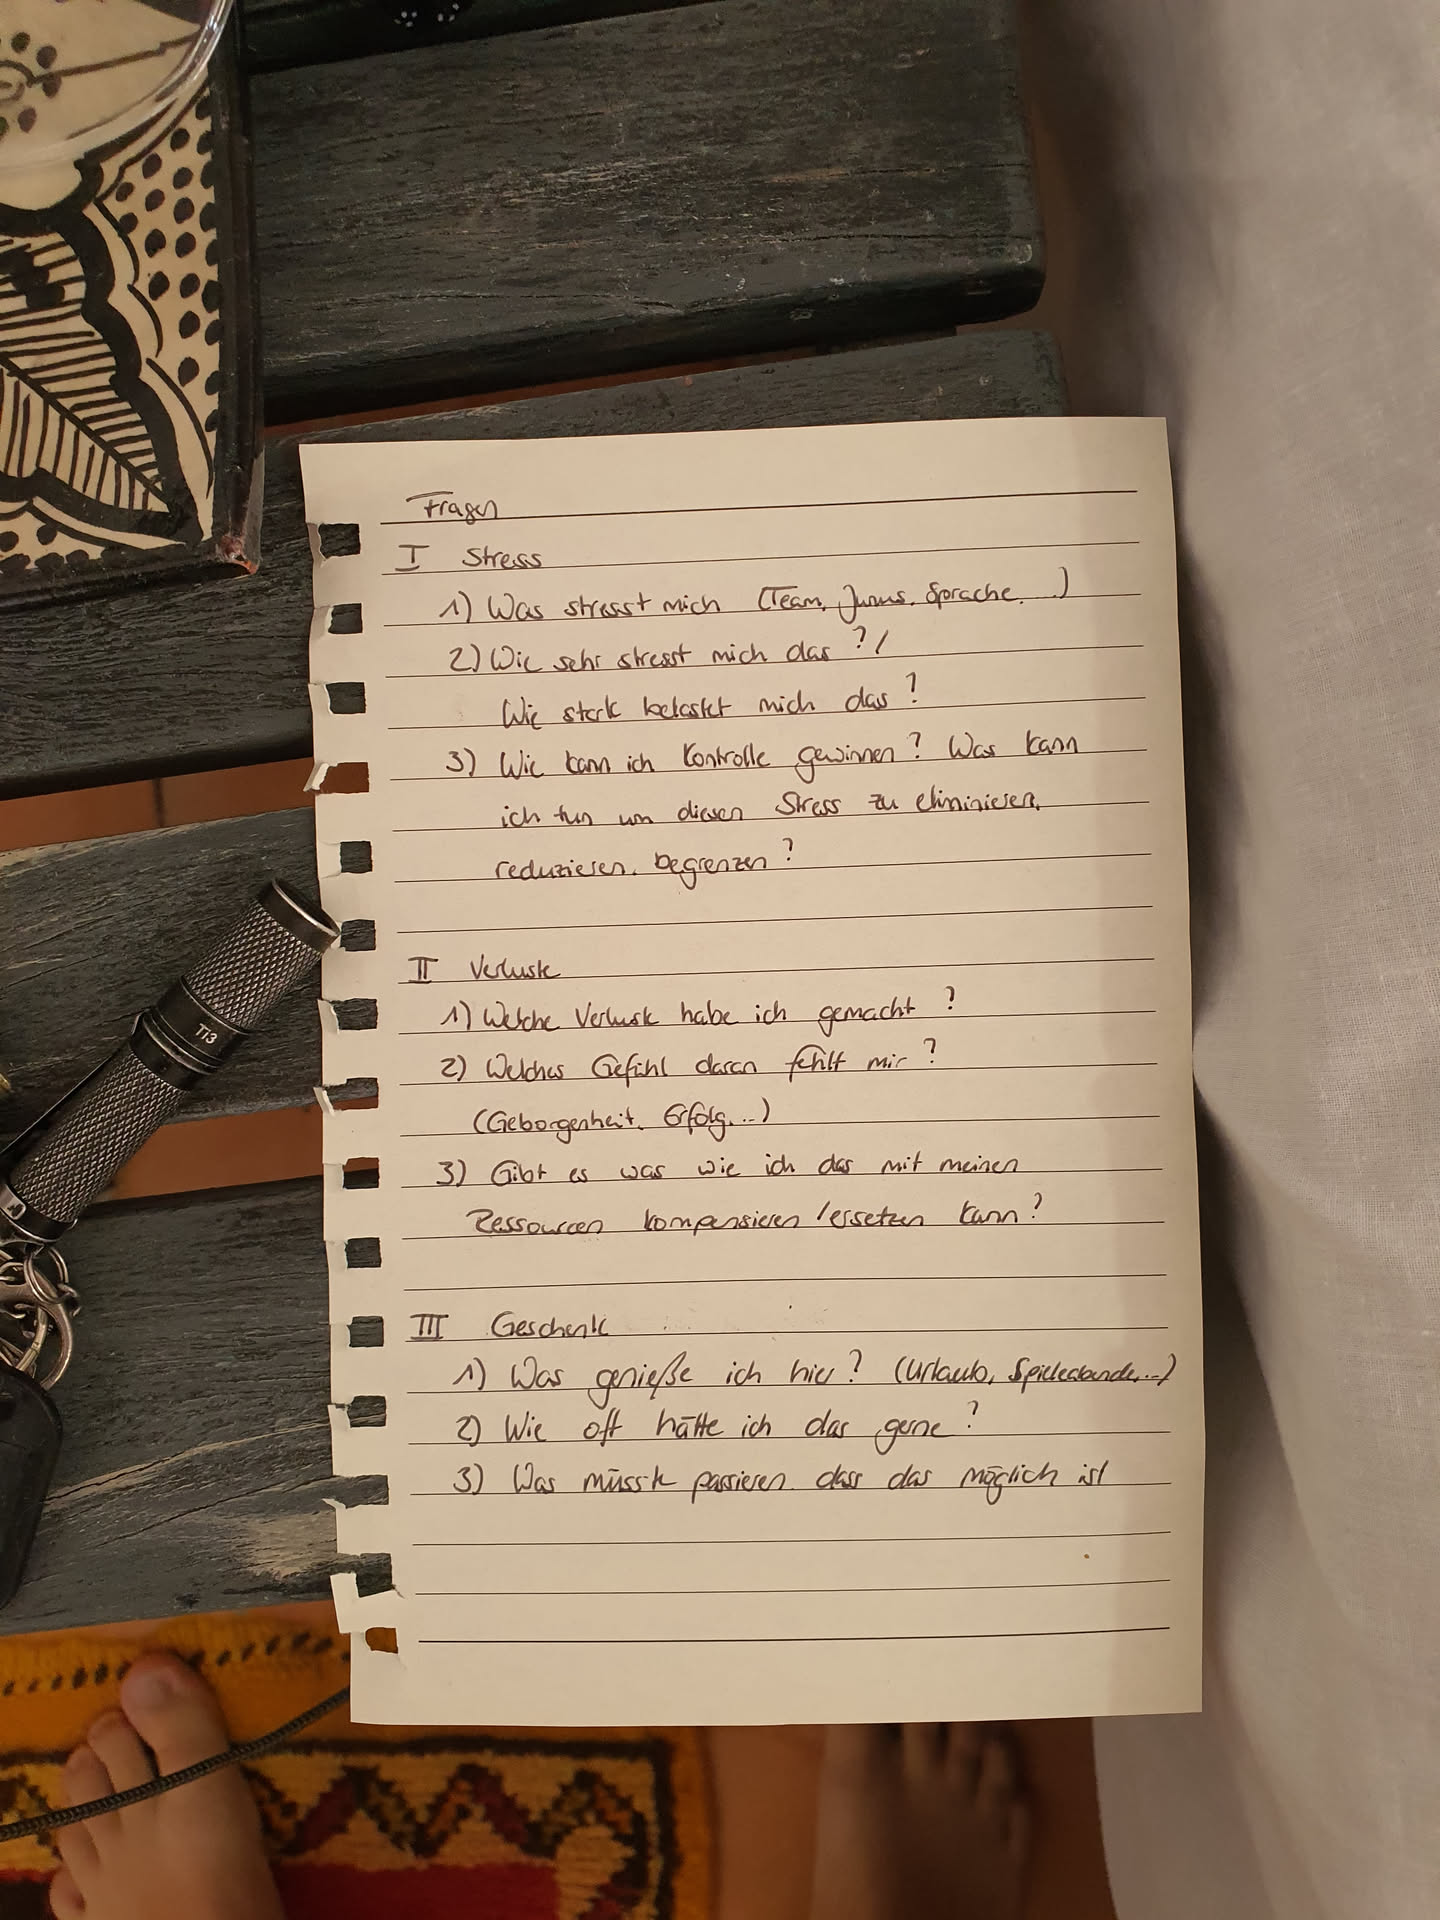 Fragen
I Stress
1) Was stresst mich (Team, Sprache, ...)
2) Wie sehr stresst mich das?/
Wie stark belastet mich das?
3) Wie kann ich Kontrolle gewinnen? Was kann
ich tun um diesen Stress zu eliminieren,
reduzieren, begrenzen?
II Verluste
1) Welche Verluste habe ich gemacht?
2) Welches Gefühl daran fehlt mir?
(Geborgenheit, Erfolg, ...)
3) Gibt es was wie ich das mit meinen
Ressourcen kompensieren/ersetzen kann?
III Geschenk
1) Was genieße ich hier? (Urlaub, Spieleabende, ...)
2) Wie oft hätte ich das gerne?
3) Was müsste passieren, dass das möglich ist
Ti3